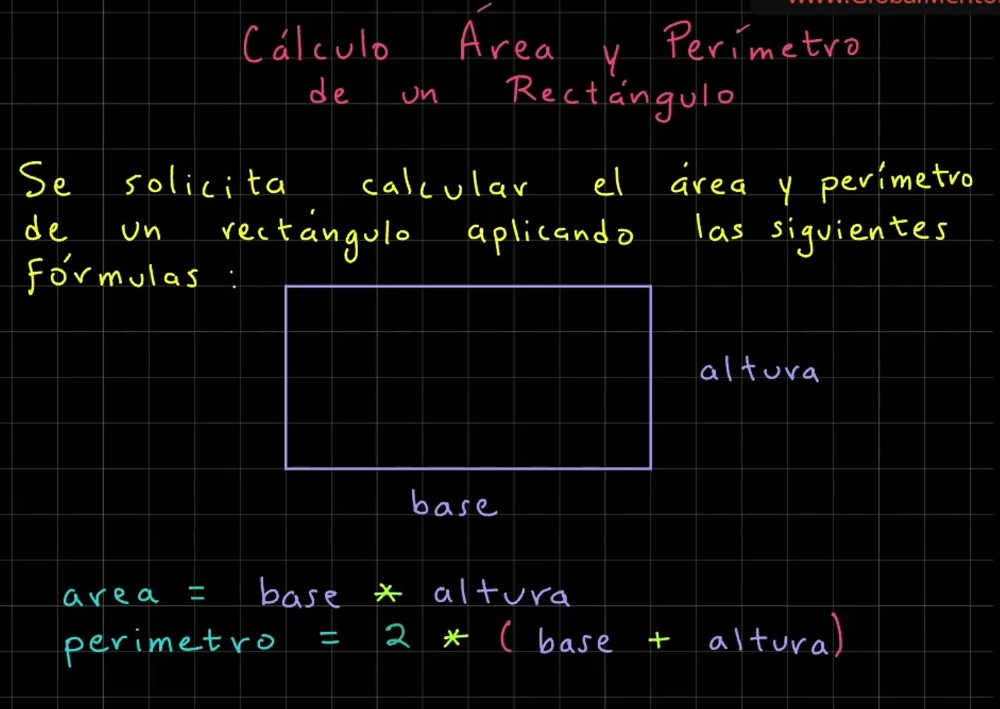 Cálculo Área y Perímetro
de un Rectángulo
Se solicita calcular el área y perímetro
de un rectángulo aplicando las siguientes
fórmulas :
altura
base
area = base * altura
perimetro = 2 * ( base + altura)